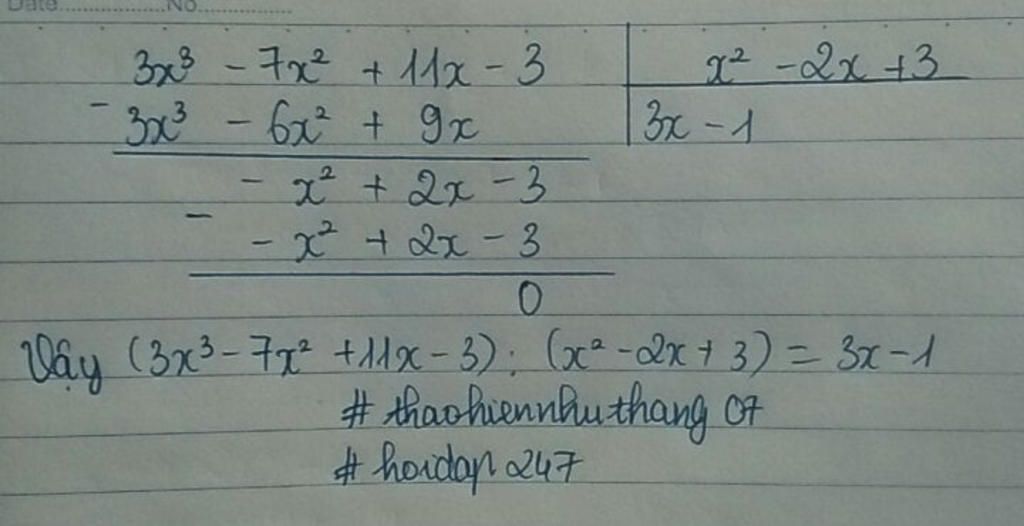 Date..................No..................
3x³ - 7x² + 11x - 3 | x² - 2x + 3
- 3x³ - 6x² + 9x | 3x - 1
- x² + 2x - 3
- - x² + 2x - 3
0
Vậy (3x³ - 7x² + 11x - 3) : (x² - 2x + 3) = 3x - 1
# thaohiennhuthang 07
# hoidap 247